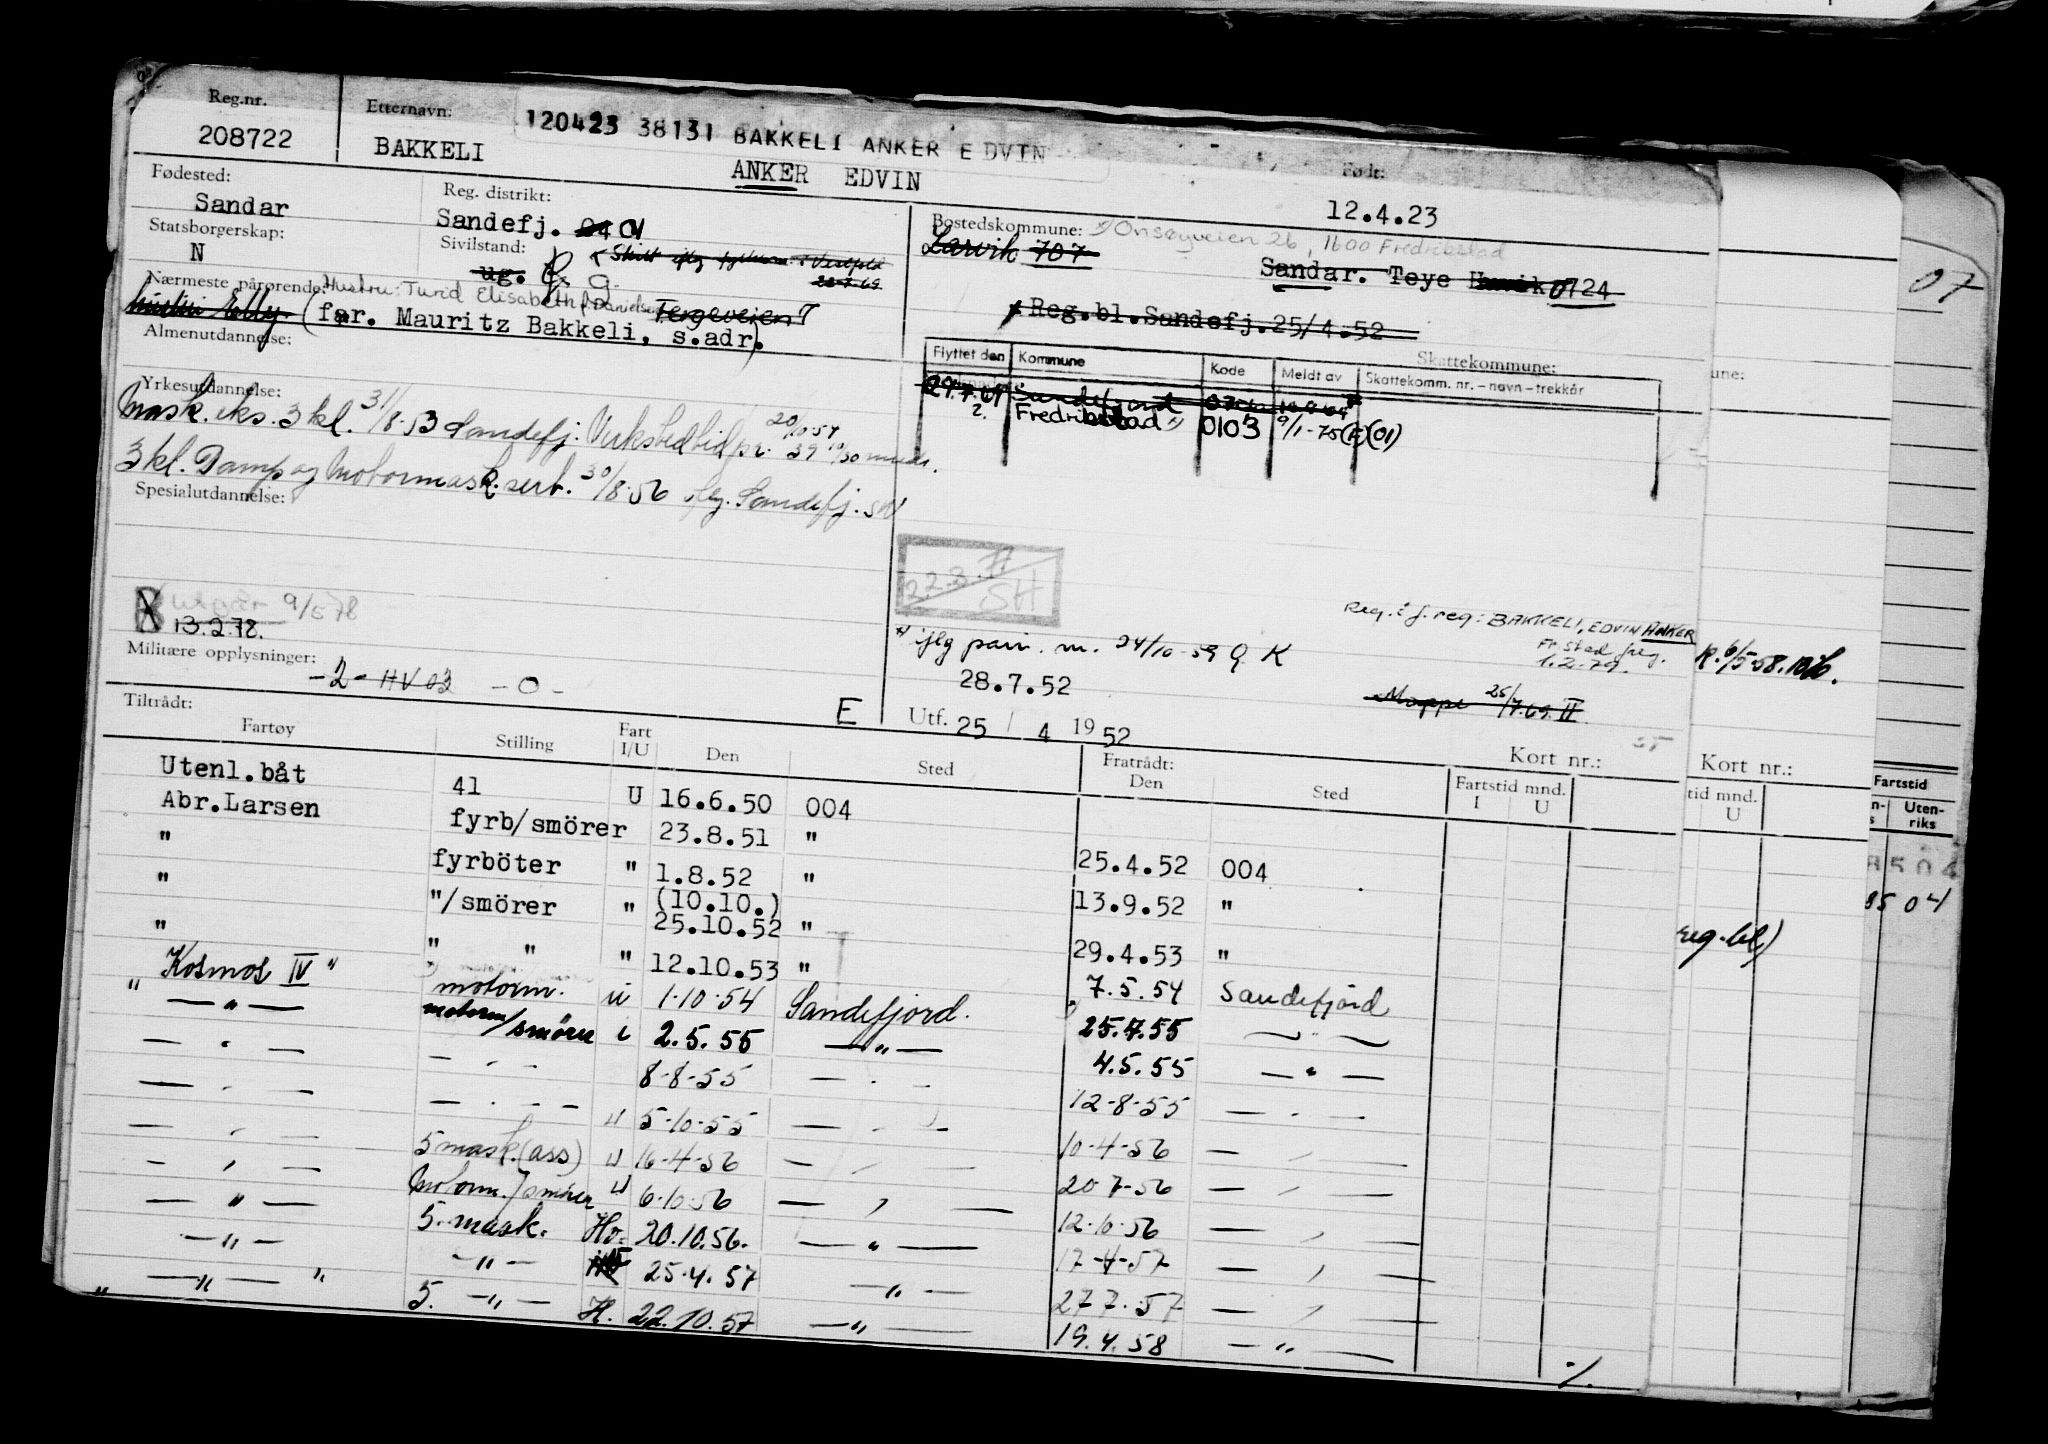 Reg.nr. Etternavn: 120423 38131 BAKKELI ANKER EDVIN Født:
208722 BAKKELI ANKER EDVIN 12.4.23
Fødested: Reg. distrikt: Bostedskommune: Onsøyveien 26, 1600 Fredrikstad
Sandar Sandefj. Larvik 707
Statsborgerskap: Sivilstand: Sandar. Teye 0724
N ug. G.
Nærmeste pårørende: Hustru: Turid Elisabeth f. Danielsen Fergeveien 7
hustru Elly (far. Mauritz Bakkeli, s.adr). Reg.bl.Sandefj.25/4.52
Almenutdannelse: Skattekommune:
Flyttet den Kommune Kode Meldt av Skattekomm. nr. – navn – trekkår
29.7.69 Sandefjord
Fredrikstad 0103 9/1-75 (01)
Yrkesutdannelse:
Mask. eks. 3 kl. 31/8.53 Sandefj. Virkstedtid 20/10.54
3 kl. Damp og Motormask. sert. 30/8.56 Sandefj.
Spesialutdannelse:
22.8.77
SH
utgår 9/5 78
13.2.78.
Reg. i f. reg: BAKKELI, EDVIN ANKER
Fr.stad
1.2.79.
24/10-59 K
Militære opplysninger: -2- HV 03 -0-
28.7.52
Mappe 25/7.69. II
E Utf. 25 / 4 1952
Kort nr.: Kort nr.:
Tiltrådt: Fratrådt:
Fartøy Stilling Fart I/U Den Sted Den Sted Fartstid mnd. I U
Utenl.båt 41 U 16.6.50 004
Abr.Larsen fyrb/smörer 23.8.51 " 25.4.52 004
" fyrböter " 1.8.52 " 13.9.52 "
" "/smörer " (10.10.) 25.10.52 " 29.4.53 "
" " " " 12.10.53 " 7.5.54 Sandefjord
" Kosmos IV " motorm. u 1.10.54 Sandefjord. 25.4.55 — " —
— " — motorm/smörer i 2.5.55 — " — 4.5.55 — " —
— " — — " — 8-8-55 — " — 12-8-55 — " —
— " — — " — u 5-10-55 — " — 10-4-56 — " —
— " — 5 mask. (ass) u 16-4-56 — " — 20-7-56 — " —
— " — Motorm./smörer u 6-10-56 — " — 12-10-56 — " —
— " — 5. mask. Hv. 20.10.56. — " — 17-4-57 — " —
— " — — " — 25.4.57 — " — 27 7.57 — " —
" — " — " 5. — " — H. 22.10.57 — " — 19.4.58 — " —
07
une:
tid mnd.
U
Fartstid
Uten-
riks
8504
8504
reg.bl)